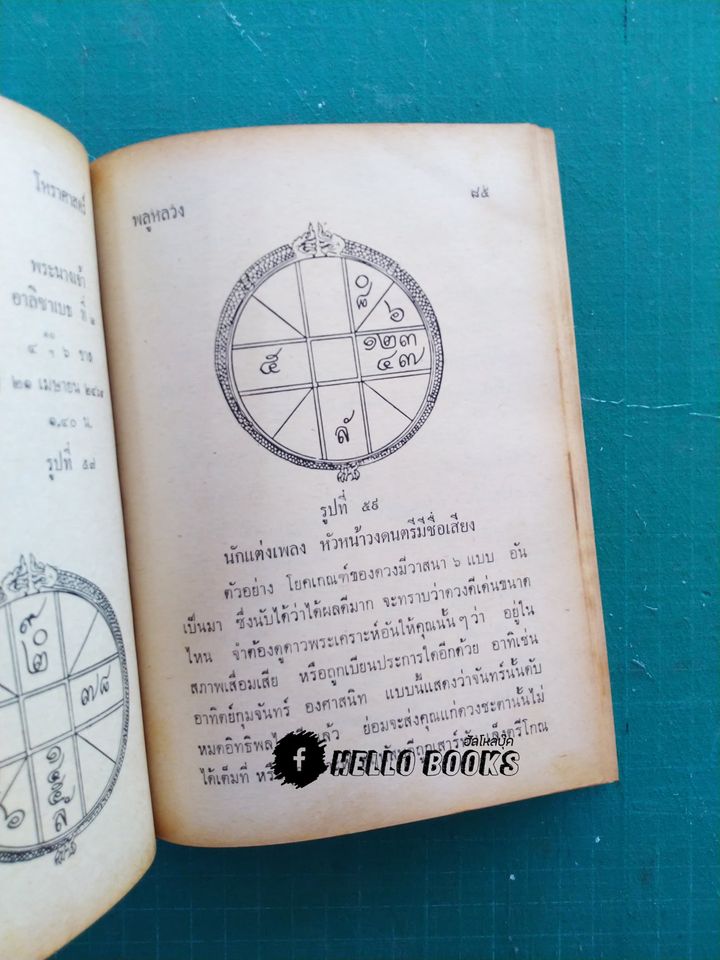 โหราศาสตร์
พระนางเจ้า
อาลิซาเบธ ที่ ๒
๒๑ เมษายน ๒๔๖๙
๑.๔๐ น.
รูปที่ ๕๗
๒๐๙
๓๘
ลั
๖
พลูหลวง
๘๕
๐
๘
๖
๕
๑๒๓
๔๗
ลั
รูปที่ ๕๙
นักแต่งเพลง หัวหน้าวงดนตรีมีชื่อเสียง
ตัวอย่าง โยคเกณฑ์ของดวงมีวาสนา ๖ แบบ อัน
เป็นมา ซึ่งนับได้ว่าได้ผลดีมาก จะทราบว่าดวงดีเด่นขนาด
ไหน จำต้องดูดาวพระเคราะห์อันให้คุณนั้น ๆ ว่า อยู่ใน
สภาพเสื่อมเสีย หรือถูกเบียนประการใดอีกด้วย อาทิเช่น
อาทิตย์กุมจันทร์ องศาสนิท แบบนี้แสดงว่าจันทร์นั้นดับ
หมดอิทธิพล แล้ว ย่อมจะส่งคุณแก่ดวงชะตานั้นไม่
ได้เต็มที่ เล็งตรีโกณ
ฮัลโหลบุ๊ค
f HELLO BOOKS